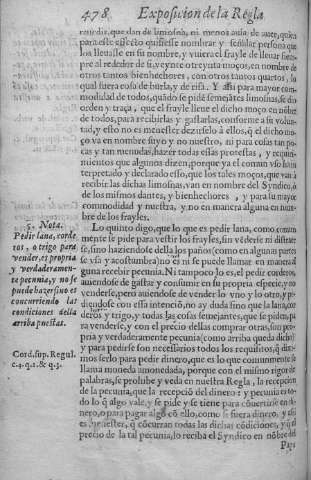 478 Exposicion de la Regla
remedir, que dan de limosna, ni menos auia de auer, quien
para este effecto quisiesse nombrar y señalar persona que
los lleuasse en su nombre, y viuera el frayle de lleuar siem-
pre al rededor de si, veynte o treynta moços, en nombre de
otros tantos bienhechores, con otros tantos quartos, lo
qual fuera cosa de burla, y de risa. Y assi para mayor com-
modidad de todos, quãdo se pide semejãtes limosnas, se dio
orden y traça, que el frayle llene el dicho moço en nõbre
de todos, para recibirlas y gastarlas, conforme a su volun-
tad, y esto no es menester dezirselo à ellos, q̃ el dicho mo-
ço va en nombre suyo y no nuestro, ni para cosas tan po-
cas y tan menudas, hazer todas essas protestas, y requiri-
mientos que algunos dizen, porque ya el comun vso ha in-
terpretado y declarado esso, que los tales moços, que van à
recibir las dichas limosnas, van en nombre del Syndico, ò
de los mismos dantes, y bienhechores, y para su mayor
commodidad y nuestra, y no en manera alguna en nom-
bre de los frayles.
5. Nota.
Pedir lana, corde
ros, o trigo para
vender, es propria
y verdaderamen-
te pecunia, y no se
puede hazer sino es
concurriendo las
condiciones della
arriba puestas.
Cord. sup. Regul.
c. 4. q. 2. & q. 3.
Lo quinto digo, que lo que es pedir lana, como comun
mente se pide para vestir los frayles, sin vẽderse ni distraer
se, sino haziendose della los paños (como en algunas partes
se vsa y acostumbra) no es ni se puede llamar en manera al
guna recebir pecunia. Ni tampoco lo es, el pedir corderos,
auiendose de gastar y consumir en su propria especie, y no
venderse, pero auiendose de vender lo vno y lo otro, y pi-
diendose con essa intenciõ, no ay duda sino que la lana, cor
deros, y trigo, y todas las cosas semejantes, que se piden, pa
ra venderse, y con el precio dellas comprar otras, son pro-
pria y verdaderamente pecunia (como arriba queda dicho)
y para pedirse son necessarios todos los requisitos, q̃ dixi-
mos serlo para pedir dinero, que es lo que comunmente se
llama moneda amonedada, porque con el mismo rigor de
palabras, se prohibe y veda en nuestra Regla, la recepcion
de la pecunia, que la recepciõ del dinero: y pecunia es to-
do lo q̃ algo vale, y se pide y se tiene para cõuertirse en di-
nero, o para pagar algo cõ ello, como si fuera dinero, y assi
es menester, q̃ cõcurran todas las dichas cõdiciones, y q̃ el
precio de la tal pecunia, lo reciba el Syndico en nõbre del
Papa